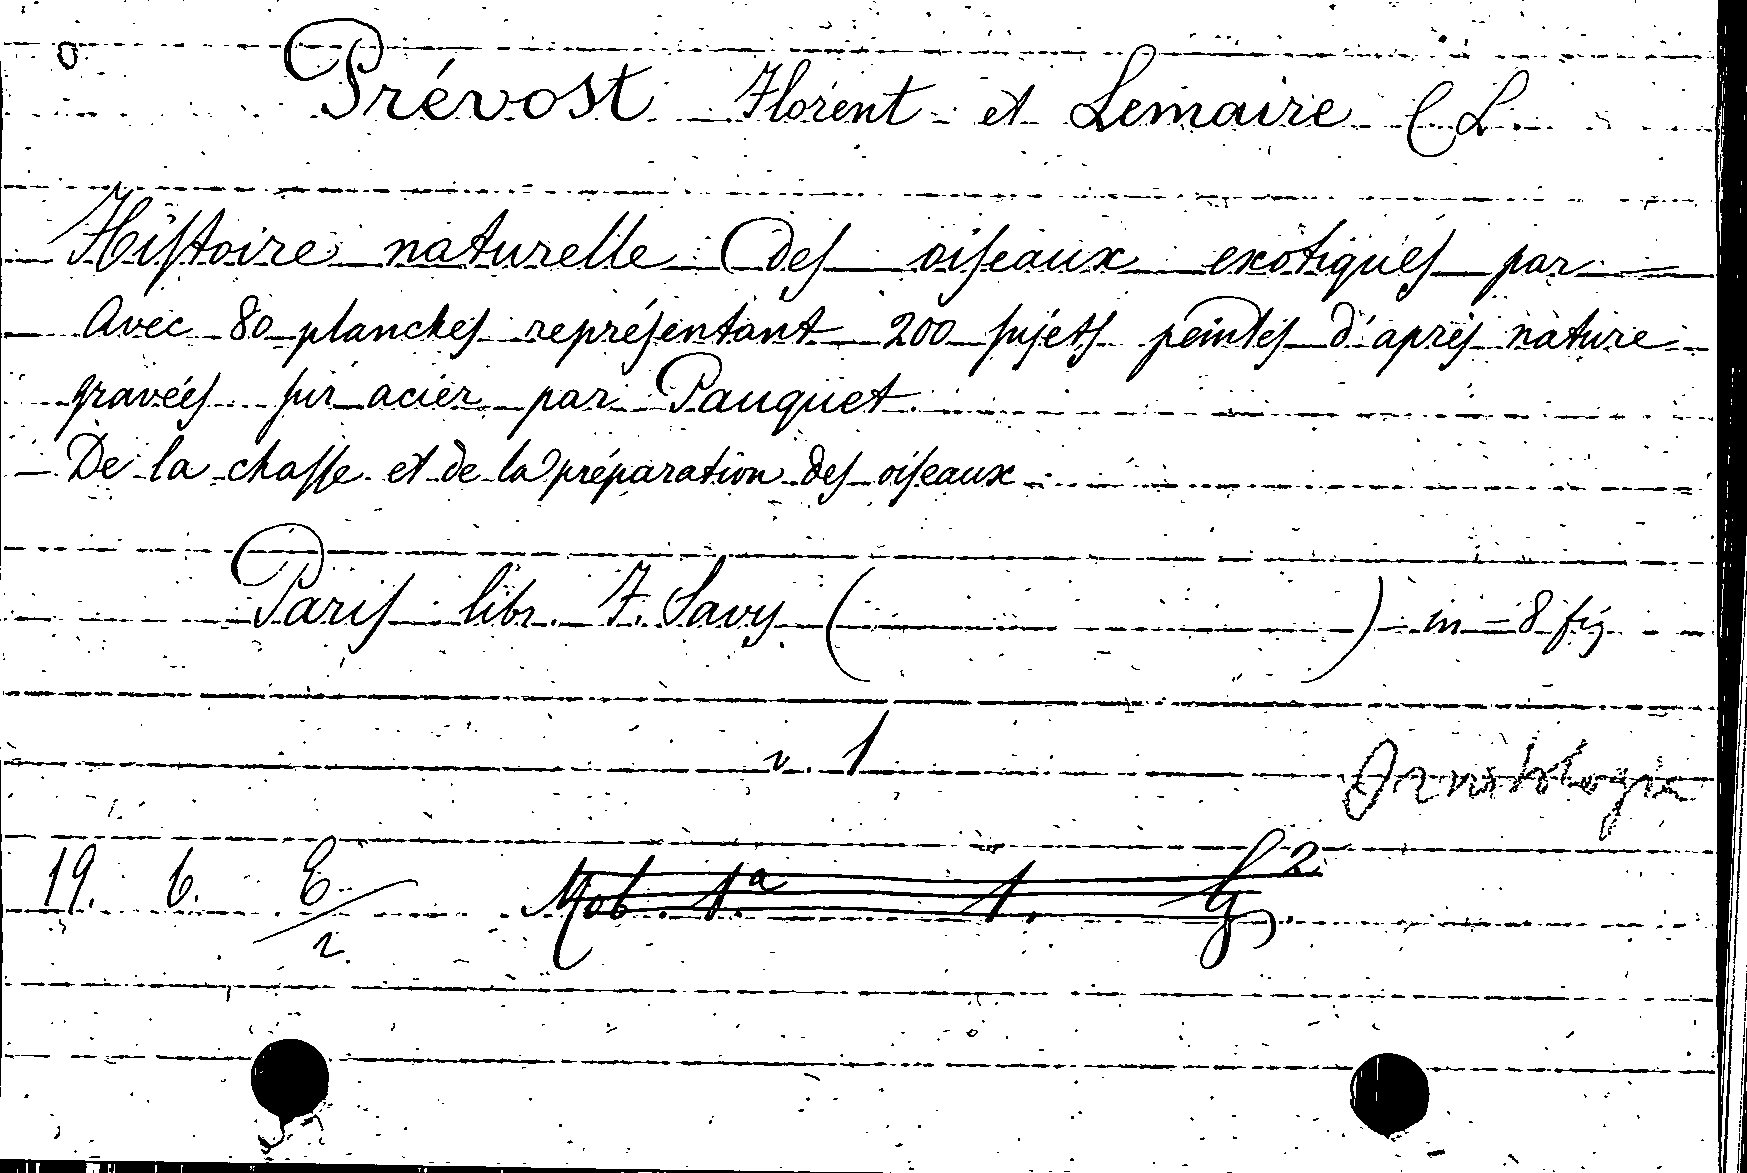 Prévost Florent et Lemaire C L.
Histoire naturelle des oiseaux exotiques par
Avec 80 planches représentant 200 sujets peintes d'après nature
gravées sur acier par Pauquet
De la chasse et de la préparation des oiseaux
Paris libr. F. Savy ( ) in-8 fig
v. 1
Ornitologia
19. 6. E/2. Mob. 1.ª 1. G 2.